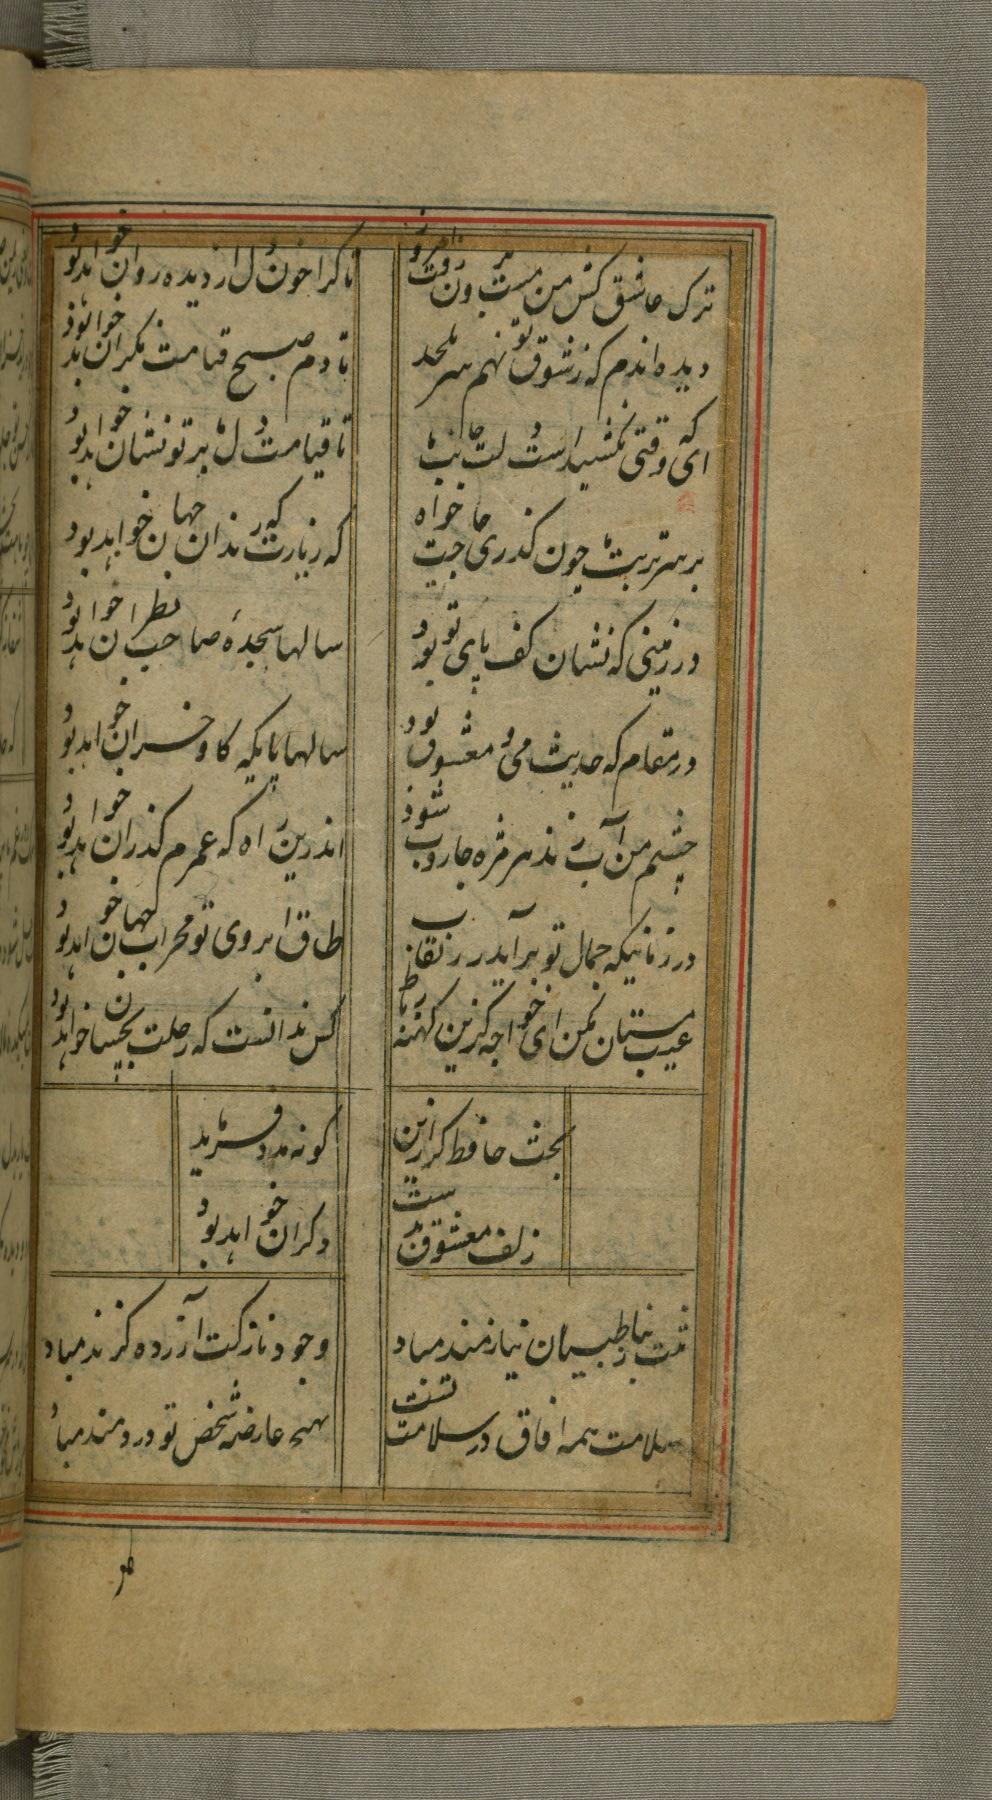 ترک عاشق کش من مست برون رفت امروز
تا کرا خون دل از دیده روان خواهد بود
دیده اندم که ز شوق تو نهم سر بلحد
تا دم صبح قیامت نکران خواهد بود
تا قیامت دل ما بر تو نشان خواهد بود
بر سر تربت ما چون کذری حاجت خواه
که زیارت که رندان جهان خواهد بود
در زمینی که نشان کف پای تو بود
سالها سجدهٔ صاحب نظران خواهد بود
در مقام که حدیث می و معشوق بود
سالها پایکه کاو و خران خواهد بود
چشم من آب زند هر مژه جاروب شود
اندرین راه که عمرم کذران خواهد بود
در زمانیکه جمال تو برآید ز نقاب
طاق ابروی تو محراب جهان خواهد بود
عیب مستان مکن ای خواجه کزین کهنه رباط
کس ندانست که رحلت بچسان خواهد بود
بخت حافظ کر ازین
کونه مدد فرماید
زلف معشوق بدست
دکران خواهد بود
تنت بناز طبیبان نیازمند مباد
وجود نازکت آزرده کزند مباد
سلامت همه افاق در سلامت تست
بهیچ عارضه شخص تو دردمند مباد